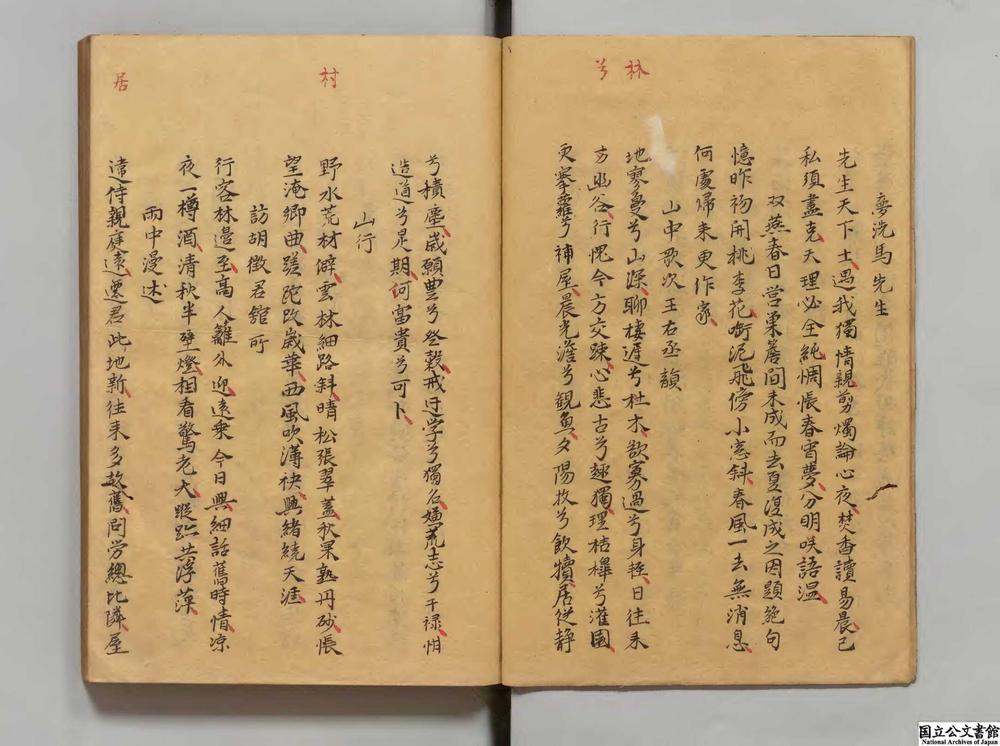 林
兮
夢洗馬先生
先生天下士遇我獨情親剪燭論心夜焚香讀易晨己
私須盡克天理必全純惆悵春宵夢分明咲語温
双燕春日営巣簷间未成而去夏復成之因題絶句
憶昨初開桃李花啣泥飛傍小窓斜春風一去無消息
何處帰来更作家
山中歌次王右丞韻
地寥曼兮山深聊棲遲兮杜木欲寡過兮身輕日往来
方幽谷行愧今方交踈心悲古兮趣獨理桔槹兮灌園
更搴蘿兮補屋晨光澹兮観魚夕陽牧兮飲犢居従静
村
居
兮積塵歳願豊兮登穀戒迂学兮獨名媿荒志兮干禄惟
造道兮是期何富貴兮可卜
山行
野水荒村僻雲林細路斜晴松張翠蓋秋果熟丹砂悵
望淹郷曲蹉跎改歳華西風吹薄袂興緒繞天涯
訪胡徴君舘所
行客林邉至高人籬外迎遠乗今日興細話舊時情凉
夜一樽酒清秋半壁燈相看驚老大蹤跡共浮萍
雨中漫述
違侍親庭遠還君此地新往来多故舊问労總比隣屋
国立公文書館
National Archives of Japan